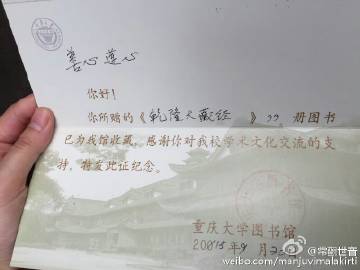 善心莲心
你好！
你所赠的《乾隆大藏经》99册图书
已为我馆收藏，感谢你对我校学术文化交流的支
持，特发此证纪念。
重庆大学图书馆
2015年9月23日
@常丽世音
weibo.com/manjuvimalakirti